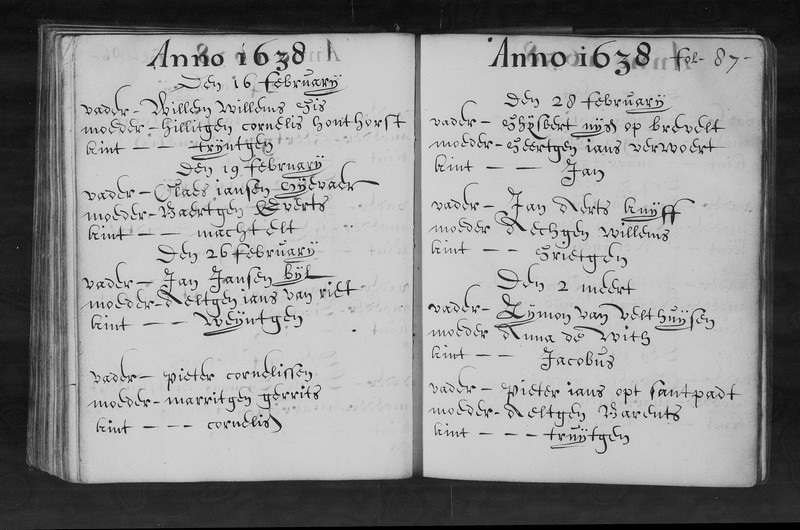 Anno 1638
Den 16 february
vader - Willem Willems Sis
moeder - hillitgen cornelis honthorst
kint - - - trijntgen
Den 19 february
vader - Claes iansen
moeder - Baertgen Everts
kint - - - machtelt
Den 26 february
vader - Jan Jansen bijl
moeder - Aeltgen ians van riet
kint - - - Weijntgen
vader - pieter cornelissen
moeder - marritgen gerrits
kint - - - cornelis
Anno 1638 fol - 87 -
Den 28 february
vader - Ghijsbert op brevelt
moeder - Geertgen ians verwoert
kint - - - Jan
vader - Jan Aerts knijff
moeder Aechgen willems
kint - - - Grietgen
Den 2 meert
vader - Zymon van velthuijsen
moeder Anna de With
kint - - - Jacobus
vader - pieter ians opt santpadt
moeder - Aeltgen Barents
kint - - - truijtgen